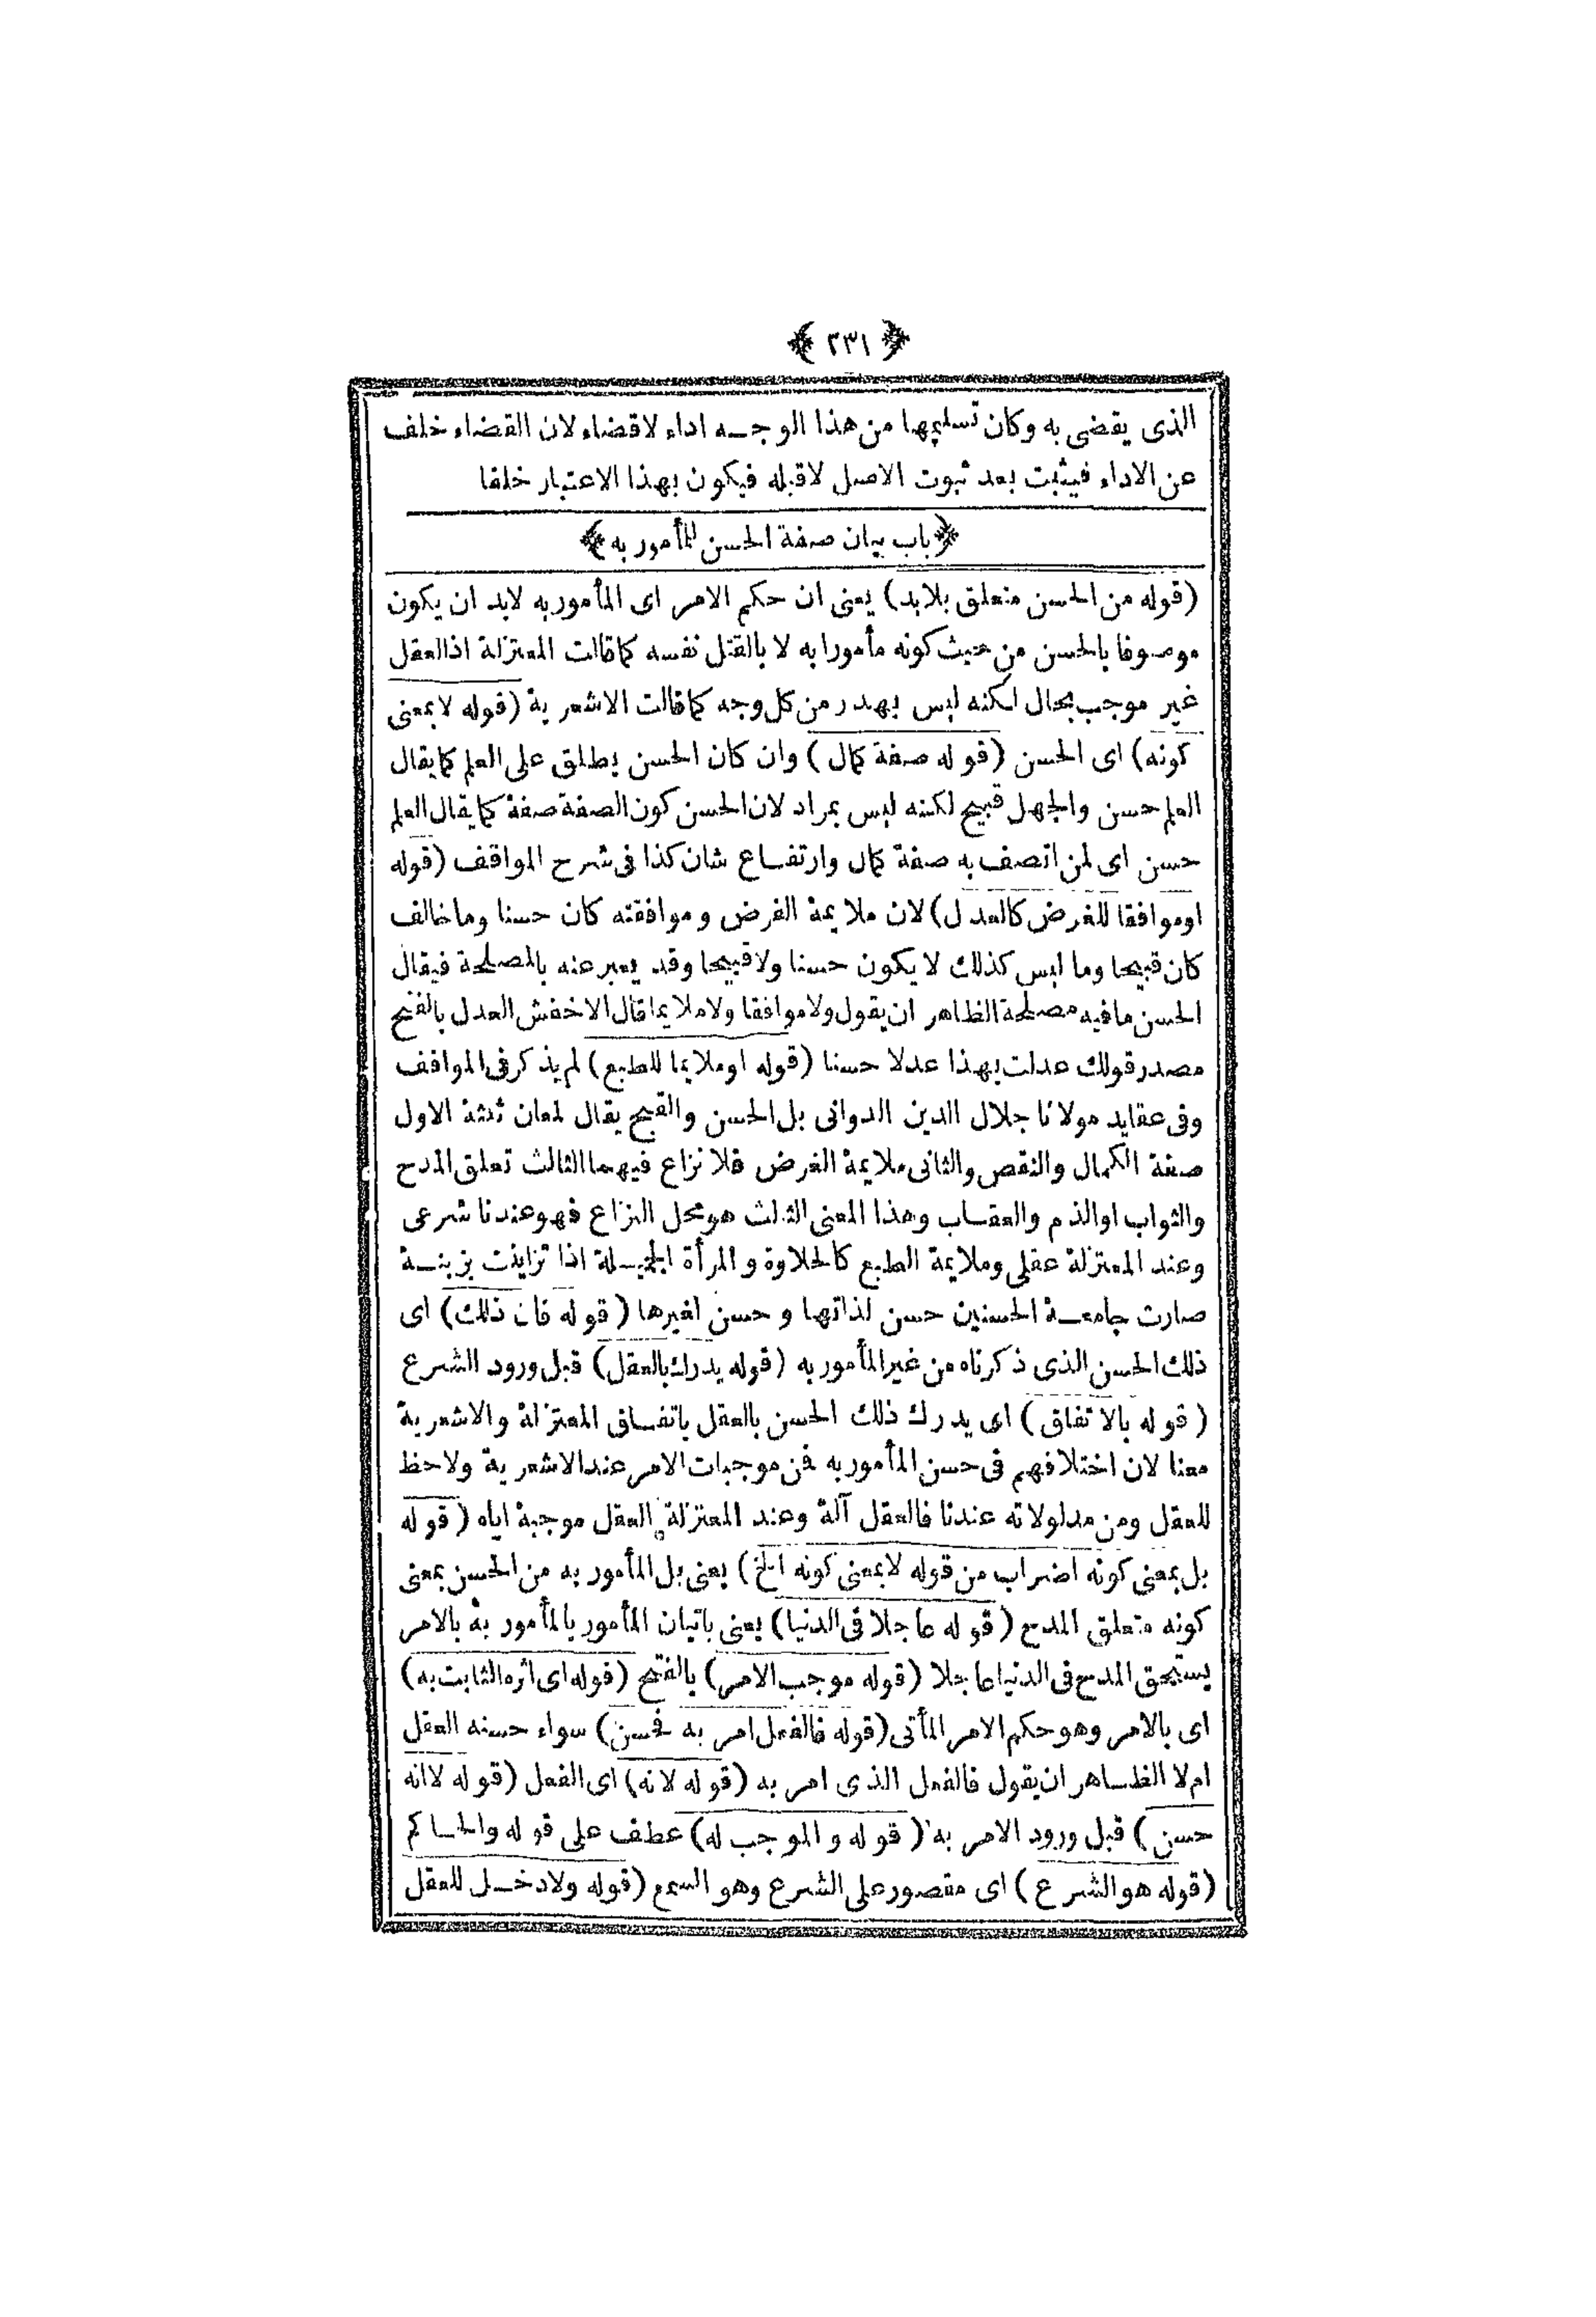 ﴿ ٢٣١ ﴾
الذى يقضى به وكان تسليمها من هذا الوجـه اداء لاقضاء لان القضاء خلف
عن الاداء فيثبت بعد ثبوت الاصل لاقبله فيكون بهذا الاعتبار خلفا
﴿ باب بيان صفة الحسن للمأمور به ﴾
(قوله من الحسن متعلق بلابد) يعنى ان حكم الامر اى المأمور به لابد ان يكون
موصوفا بالحسن من حيث كونه مأمورا به لا بالقتل نفسه كما قالت المعتزلة اذ العقل
غير موجب بحال لكنه ليس بهدر من كل وجه كما قالت الاشعرية (قوله لا بمعنى
كونه) اى الحسن (قوله صفة كمال) وان كان الحسن يطلق على العلم كما يقال
العلم حسن والجهل قبيح لكنه ليس بمراد لان الحسن كون الصفة صفة كما يقال العلم
حسن اى لمن اتصف به صفة كمال وارتفاع شان كذا فى شرح المواقف (قوله
اوموافقا للغرض كالعدل) لان ملايمة الغرض وموافقته كان حسنا وما خالف
كان قبيحا وما ليس كذلك لا يكون حسنا ولا قبيحا وقد يعبر عنه بالمصلحة فيقال
الحسن ما فيه مصلحة الظاهر ان يقول ولا موافقا ولا ملايما قال الاخفش العدل بالفتح
مصدر قولك عدلت بهذا عدلا حسنا (قوله اوملايما للطبع) لم يذكر فى المواقف
وفى عقايد مولانا جلال الدين الدوانى بل الحسن والقبح يقال لمعان ثلثة الاول
صفة الكمال والنقص والثانى ملايمة الغرض فلا نزاع فيهما الثالث تعلق المدح
والثواب او الذم والعقاب وهذا المعنى الثالث هو محل النزاع فهو عندنا شرعى
وعند المعتزلة عقلى وملايمة الطبع كالحلاوة والمرأة الجميلة اذا تزاينت بزينـة
صارت جامعـة الحسنين حسن لذاتها وحسن لغيرها (قوله فان ذلك) اى
ذلك الحسن الذى ذكرناه من غير المأمور به (قوله يدرك بالعقل) قبل ورود الشرع
(قوله بالاتفاق) اى يدرك ذلك الحسن بالعقل باتفـاق المعتزلة والاشعرية
معنا لان اختلافهم فى حسن المأمور به فمن موجبات الامر عند الاشعرية ولا حظ
للعقل ومن مدلولاته عندنا فالعقل آلة وعند المعتزلة العقل موجبة اياه (قوله
بل بمعنى كونه اضراب من قوله لا بمعنى كونه الخ) يعنى بل المأمور به من الحسن بمعنى
كونه متعلق المدح (قوله عاجلا فى الدنيا) يعنى باتيان المأمور بالمأمور به بالامر
يستحق المدح فى الدنيا عاجلا (قوله موجب الامر) بالفتح (قوله اى اثره الثابت به)
اى بالامر وهو حكم الامر المأتى (قوله فالفعل امر به فحسن) سواء حسنه العقل
ام لا الظـاهر ان يقول فالفعل الذى امر به (قوله لانه) اى الفعل (قوله لاانه
حسن) قبل ورود الامر به (قوله والموجب له) عطف على قوله والحـاكم
(قوله هو الشرع) اى مقصور على الشرع وهو السمع (قوله ولا دخـل للعقل